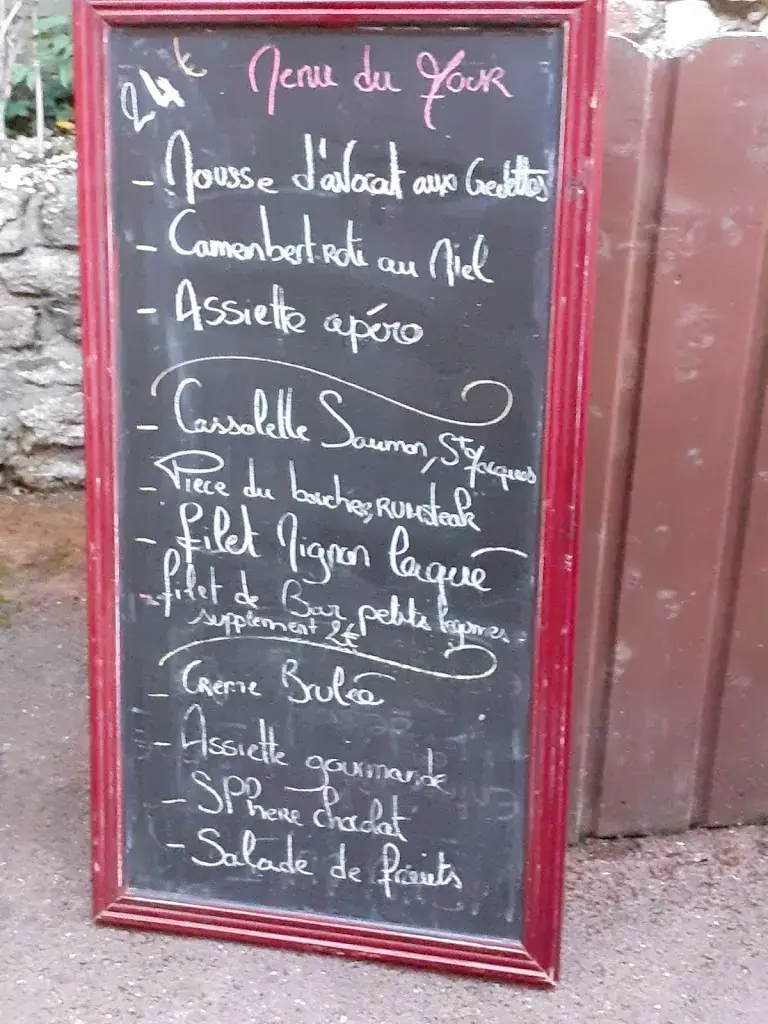 24€ Menu du Jour
- Mousse d'avocat aux Crevettes
- Camembert roti au Miel
- Assiette apéro
- Cassolette Saumon, St Jacques
- Piece du boucher, RUMsteak
- filet Mignon laqué
- filet de Bar, petits legumes
supplement 2€
- Creme Brulée
- Assiette gourmande
- SPhere chocolat
- Salade de fruits